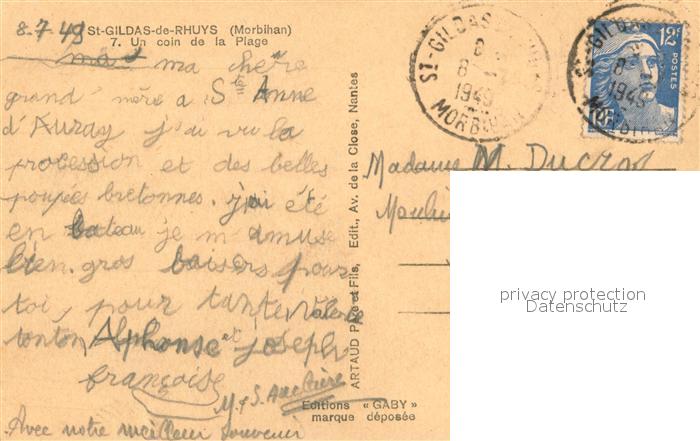 8-7-49 St-GILDAS-de-RHUYS (Morbihan)
7. Un coin de la Plage
ma chère
grand mère a Ste Anne
d'Auray j'ai vu la
procession et des belles
poupées bretonnes. j'ai été
en bateau je m'amuse
bien. gros baisers pour
toi, pour tante Valérie
tonton Alphonse et joseph
françoise
M. et S.
Avec notre meilleur souvenir
Editions « GABY »
marque déposée
ARTAUD Père et Fils, Edit., Av. de la Close, Nantes
ST-GILDAS
8
1949
MORBIHAN
12F
ST-GILDAS
8
1949
MORBIHAN
Madame M. Ducros
privacy protection
Datenschutz